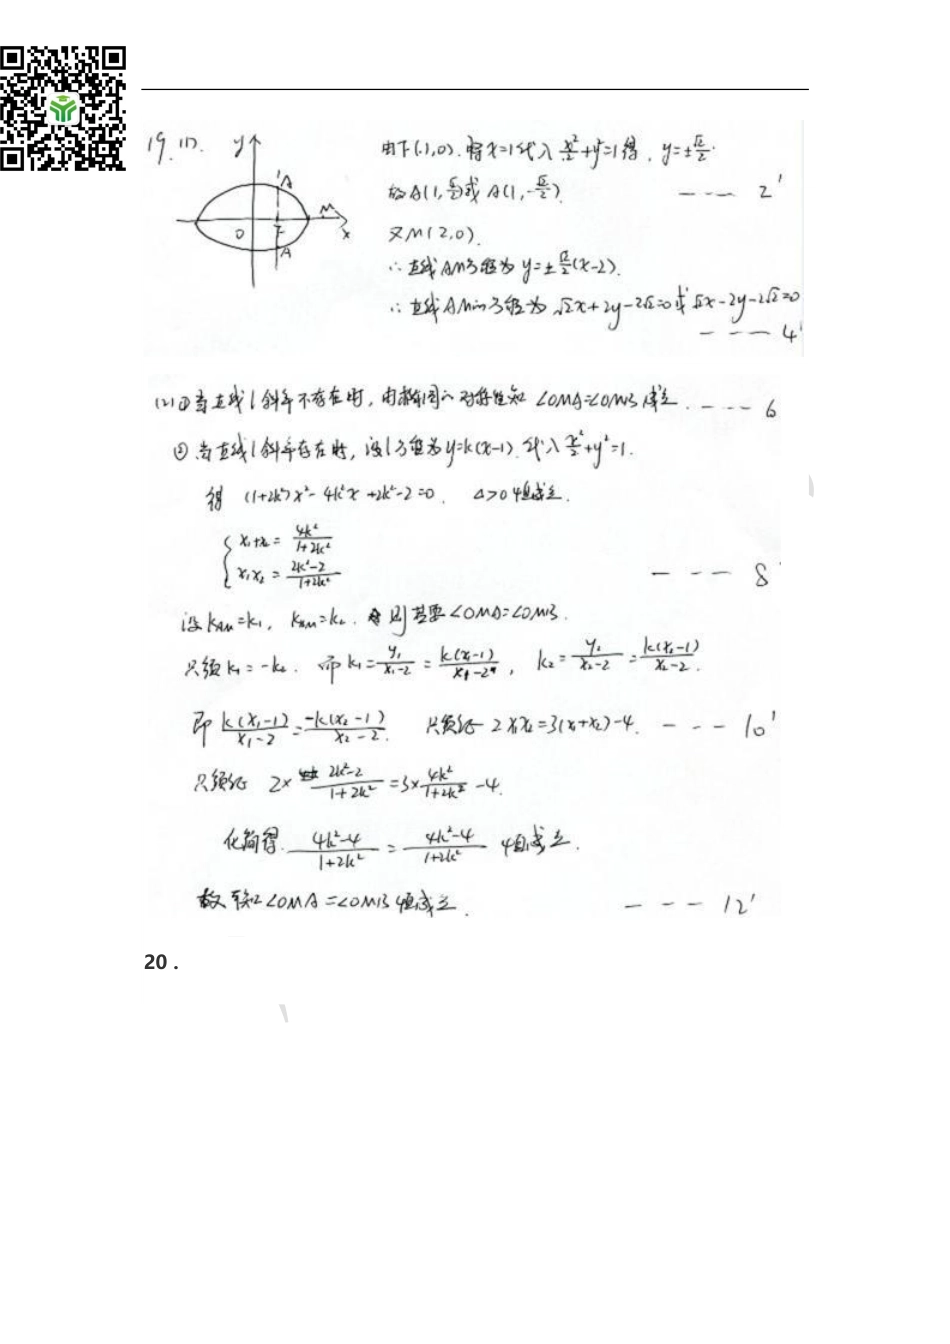 19.(1).
y
A
M
O
F
x
A
由F(1,0).将x=1代入x²/2+y²=1得,y=±√2/2.
故A(1,√2/2)或A(1,-√2/2).
--- 2'
又M(2,0).
∴直线AM方程为y=±√2/2(x-2).
∴直线AM的方程为√2x+2y-2√2=0或√2x-2y-2√2=0
--- 4'
(2)①当直线l斜率不存在时,由椭圆的对称性知∠OMA=∠OMB成立.--- 6
②当直线l斜率存在时,设l方程为y=k(x-1).代入x²/2+y²=1.
得(1+2k²)x²-4k²x+2k²-2=0. △>0恒成立.
x₁+x₂=4k²/(1+2k²)
x₁x₂=(2k²-2)/(1+2k²)
--- 8
设kAM=k₁,kBM=k₂.则若要∠OMA=∠OMB.
只须k₁=-k₂.而k₁=y₁/(x₁-2)=k(x₁-1)/(x₁-2),k₂=y₂/(x₂-2)=k(x₂-1)/(x₂-2).
即k(x₁-1)/(x₁-2)=-k(x₂-1)/(x₂-2). 只须证2x₁x₂=3(x₁+x₂)-4.--- 10'
只须证2×(2k²-2)/(1+2k²)=3×4k²/(1+2k²)-4.
化简得.(4k²-4)/(1+2k²)=(4k²-4)/(1+2k²)恒成立.
故 ∠OMA=∠OMB恒成立.
--- 12'
20.